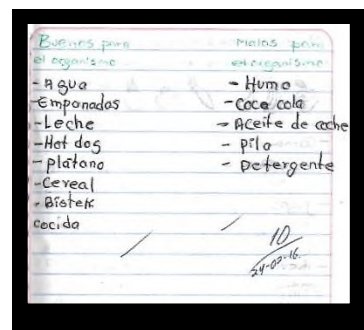 Buenos para
el organismo
- Agua
- Empanadas
- Leche
- Hot dog
- plátano
- Cereal
- Bistek
cocida
Malos para
el organismo
- Humo
- Coca cola
- Aceite de coche
- pila
- Detergente
10
24-02-16